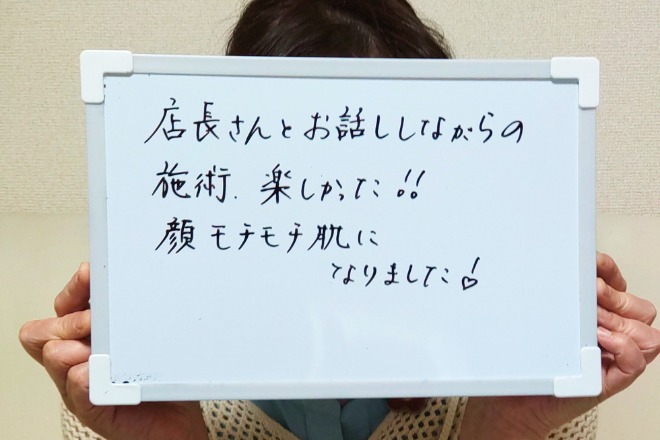 店長さんとお話ししながらの
施術、楽しかった!!
顔モチモチ肌に
なりました♡!